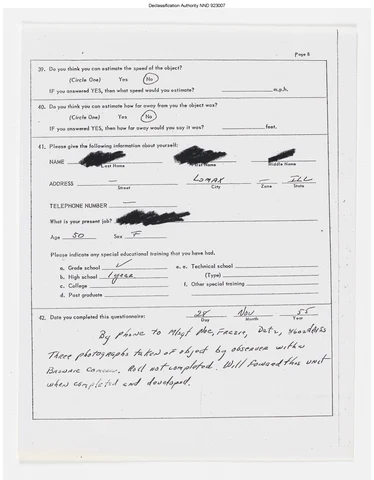 Declassification Authority NND 923007
Page 8
39. Do you think you can estimate the speed of the object?
(Circle One) Yes No
IF you answered YES, then what speed would you estimate? m.p.h.
40. Do you think you can estimate how far away from you the object was?
(Circle One) Yes No
IF you answered YES, then how far away would you say it was? feet.
41. Please give the following information about yourself:
NAME
Last Name Middle Name
ADDRESS — LOMAX — ILL
Street City Zone State
TELEPHONE NUMBER —
What is your present job?
Age 50 Sex F
Please indicate any special educational training that you have had.
a. Grade school ✓ e. Technical school
b. High school 1 year (Type)
c. College f. Other special training
d. Post graduate
42. Date you completed this questionnaire: 28 Nov 55
Day Month Year
By phone to
Three photographs taken of object by observer with a
Brownie Camera. Roll not completed. Will forward this unit
when completed and developed.